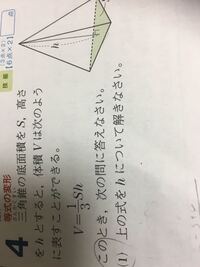 4 等式の変形
三角錐の底面積をS、高さ
をhとすると、体積Vは次のよう
に表すことができる。
V=1/3Sh
このとき、次の問に答えなさい。
(1) 上の式をhについて解きなさい。
h
【6点×2】
点